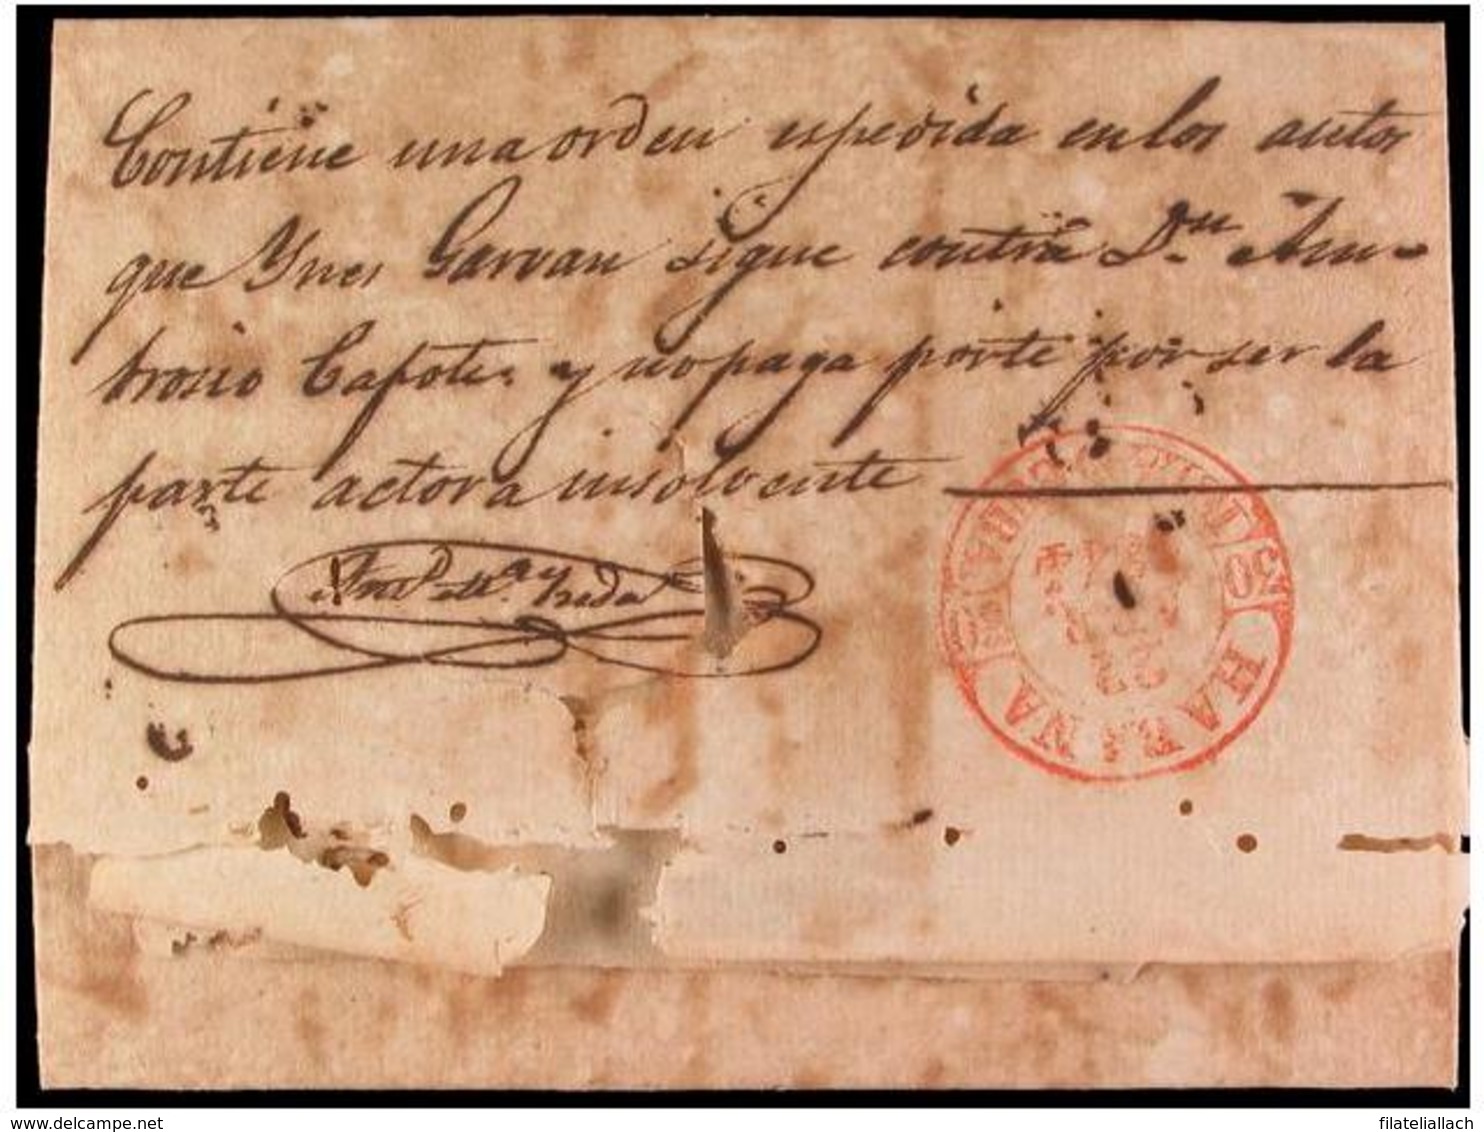 Contiene una orden espedida en los autos
que Ynes Garvan sigue contra Dn. Am-
brosio Capote, y no paga porte por ser la
parte actora insolvente
HABANA
delcampe.net
filateliallach